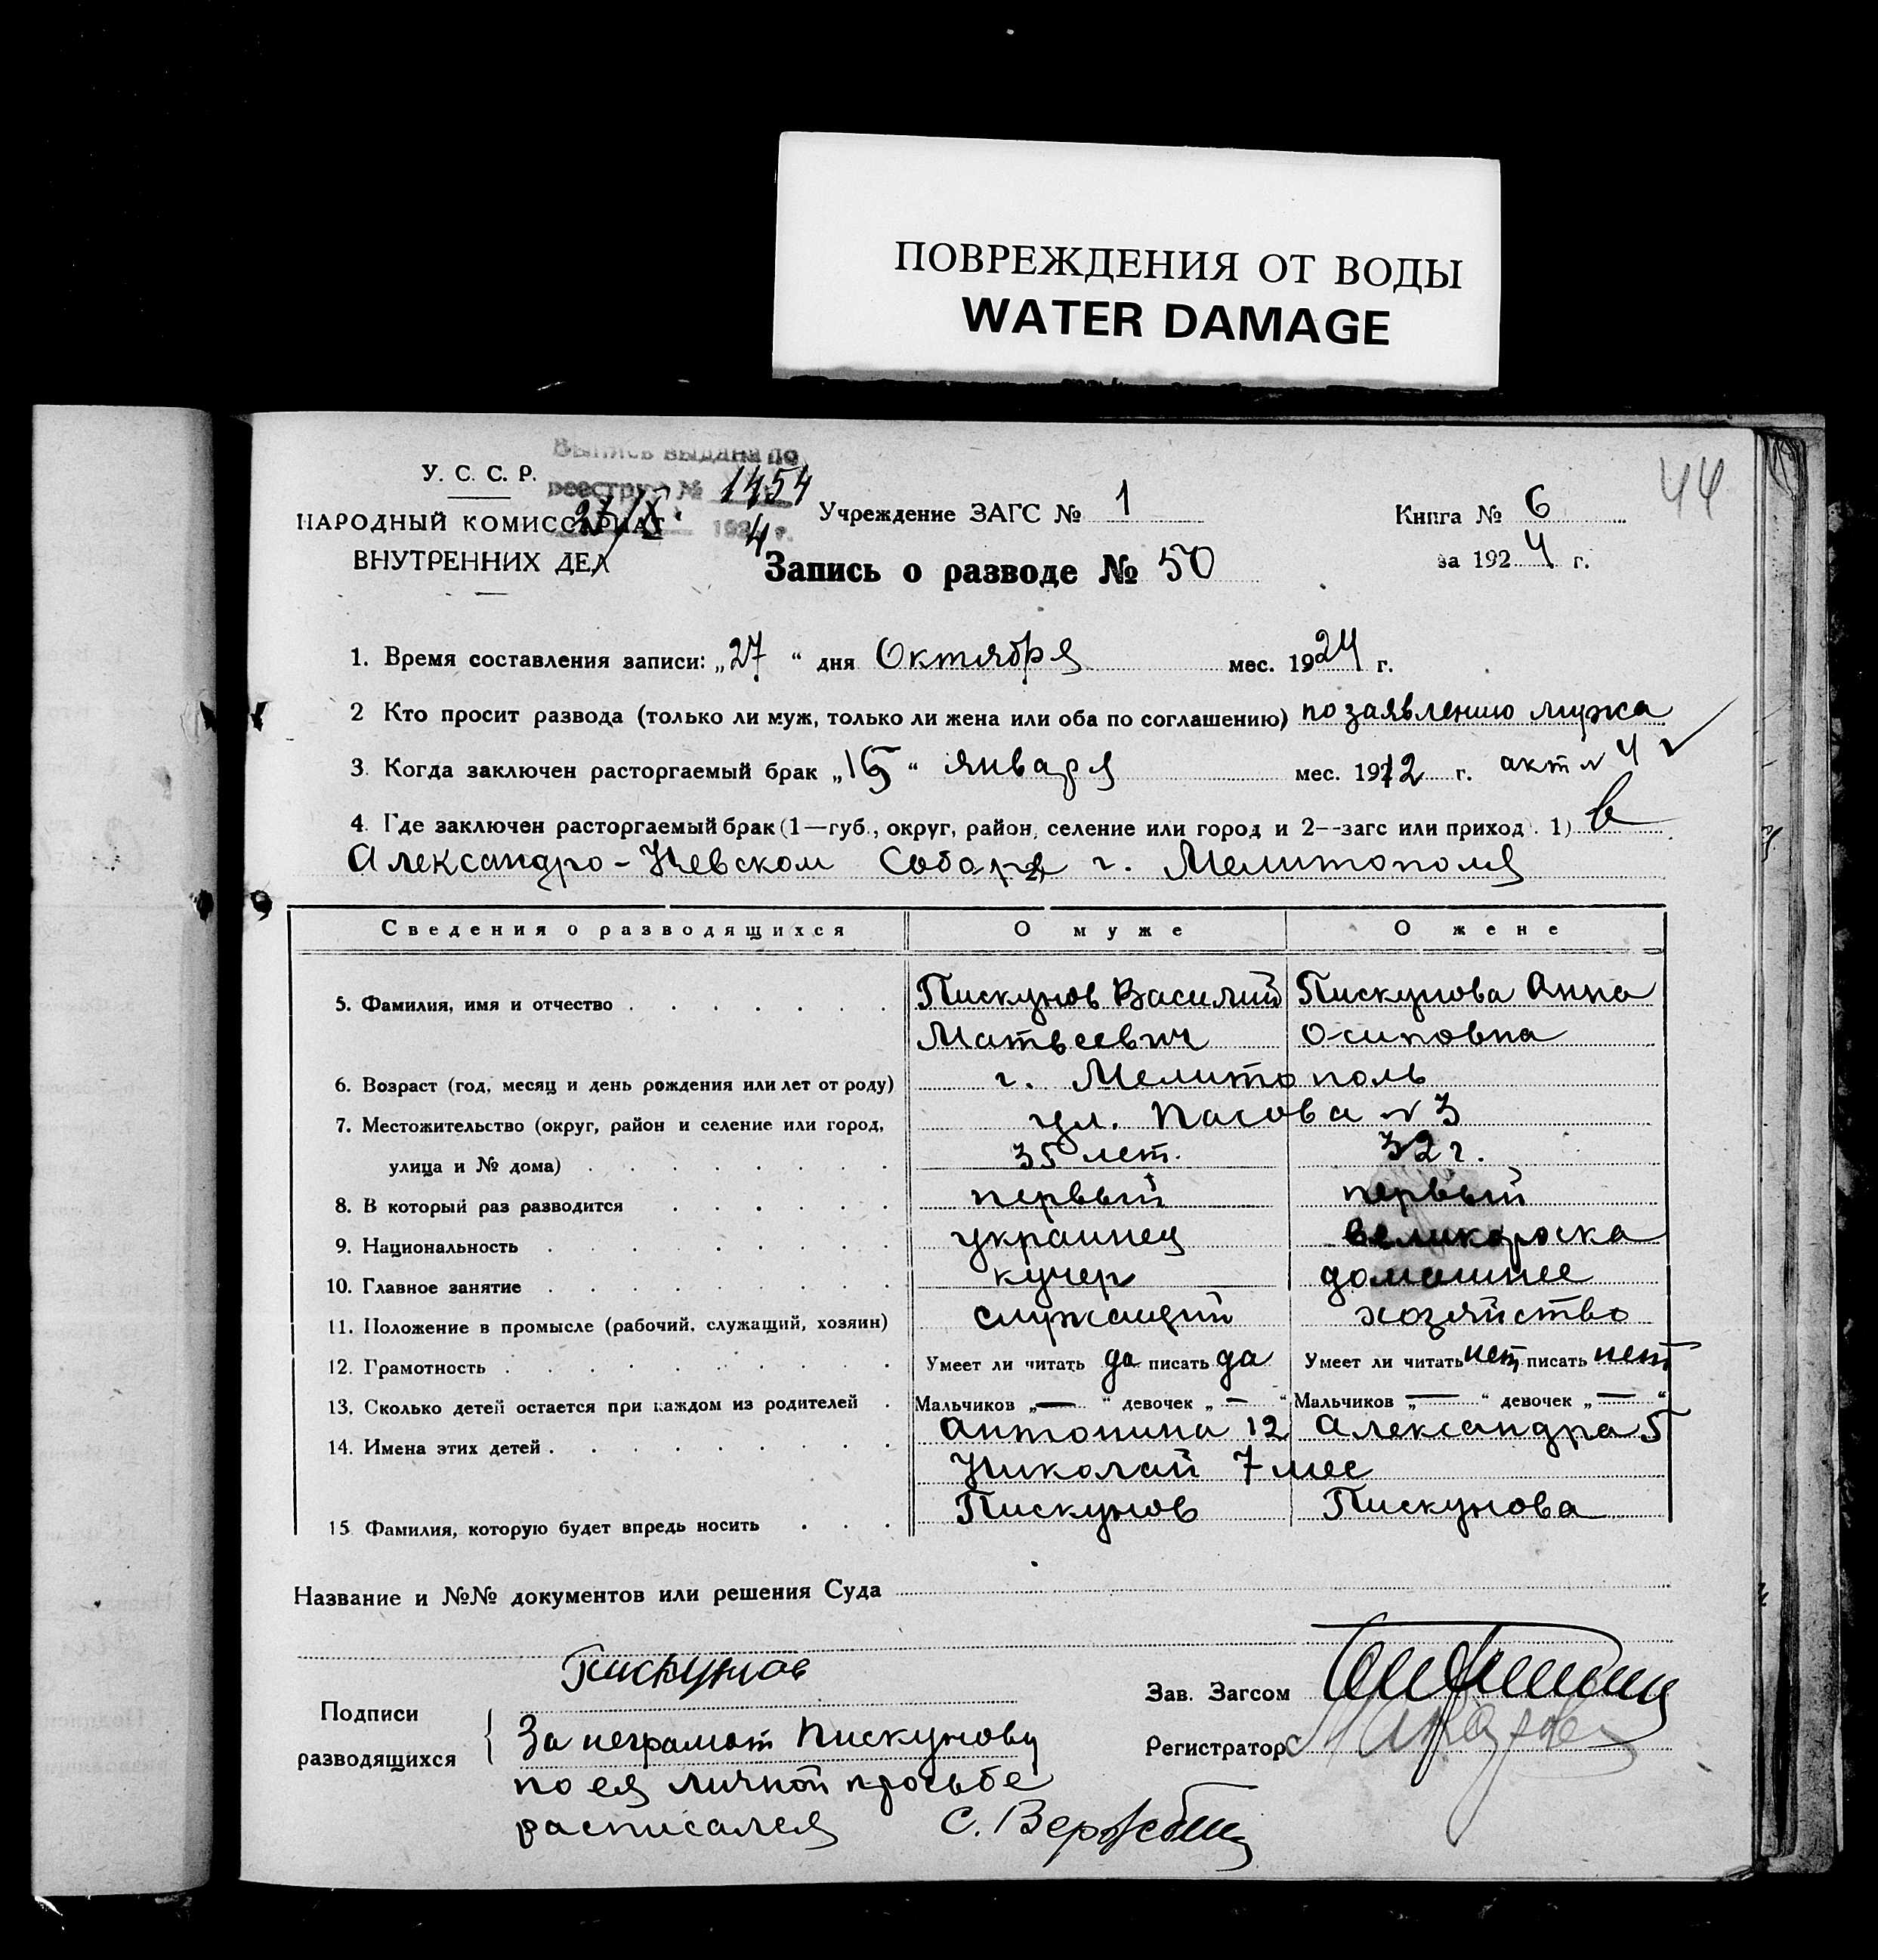 ПОВРЕЖДЕНИЯ ОТ ВОДЫ
WATER DAMAGE
44
У. С. С. Р.
НАРОДНЫЙ КОМИССАРИАТ
ВНУТРЕННИХ ДЕЛ
Выпись выдана по
реестру № 1454
27/X 1924 г.
Учреждение ЗАГС № 1
Книга № 6
за 1924 г.
Запись о разводе № 50
1. Время составления записи: „27“ дня Октября мес. 1924 г.
2 Кто просит развода (только ли муж, только ли жена или оба по соглашению) по заявлению мужа
3. Когда заключен расторгаемый брак „15“ января мес. 1912 г. акт № 4
4. Где заключен расторгаемый брак (1—губ., округ, район, селение или город и 2—загс или приход. 1) в
Александро-Невском Соборе г. Мелитополя
Сведения о разводящихся О муже О жене
5. Фамилия, имя и отчество Пискунов Василий Пискунова Анна
Матвеевич Осиповна
6. Возраст (год, месяц и день рождения или лет от роду) г. Мелитополь
7. Местожительство (округ, район и селение или город, ул. № 3
улица и № дома) 35 лет. 32 г.
8. В который раз разводится первый первый
9. Национальность украинец великороска
10. Главное занятие кучер домашнее
11. Положение в промысле (рабочий, служащий, хозяин) служащий хозяйство
12. Грамотность Умеет ли читать да писать да Умеет ли читать нет писать нет
13. Сколько детей остается при каждом из родителей Мальчиков „—“ девочек „—“ Мальчиков „—“ девочек „—“
14. Имена этих детей Антонина 12 Александра 5
Николай 7 мес
15 Фамилия, которую будет впредь носить Пискунов Пискунова
Название и №№ документов или решения Суда
Пискунов
Подписи
разводящихся
Зав. Загсом
Регистратор
За неграмот Пискунову
по ея личной просьбе
расписался С.